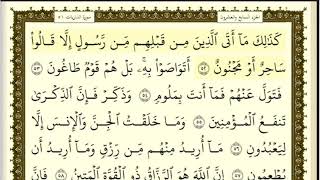 الجزء السابع والعشرون سورة الذاريات ٥١
كَذَٰلِكَ مَآ أَتَى ٱلَّذِينَ مِن قَبْلِهِم مِّن رَّسُولٍ إِلَّا قَالُوا۟
سَاحِرٌ أَوْ مَجْنُونٌ ٥٢ أَتَوَاصَوْا۟ بِهِۦ ۚ بَلْ هُمْ قَوْمٌ طَاغُونَ ٥٣
فَتَوَلَّ عَنْهُمْ فَمَآ أَنتَ بِمَلُومٍ ٥٤ وَذَكِّرْ فَإِنَّ ٱلذِّكْرَىٰ
تَنفَعُ ٱلْمُؤْمِنِينَ ٥٥ وَمَا خَلَقْتُ ٱلْجِنَّ وَٱلْإِنسَ إِلَّا
لِيَعْبُدُونِ ٥٦ مَآ أُرِيدُ مِنْهُم مِّن رِّزْقٍ وَمَآ أُرِيدُ أَن
يُطْعِمُونِ ٥٧ إِنَّ ٱللَّهَ هُوَ ٱلرَّزَّاقُ ذُو ٱلْقُوَّةِ ٱلْمَتِينُ ٥٨ فَإِنَّ